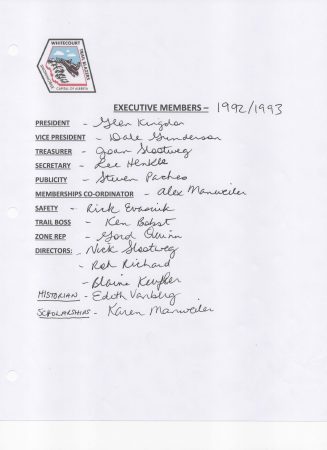 WHITECOURT
TRAIL BLAZERS
CAPITAL OF ALBERTA
EXECUTIVE MEMBERS – 1992/1993
PRESIDENT - Glen Kingdon
VICE PRESIDENT - Dale Gunderson
TREASURER - Joan Slootweg
SECRETARY - Lee Henkle
PUBLICITY - Steven Pacheo
MEMBERSHIPS CO-ORDINATOR - Alex Manweiler
SAFETY - Rick
TRAIL BOSS - Ken Bobst
ZONE REP - Gord Quinn
DIRECTORS: - Nick Slootweg
- Rob Richard
- Blaine
HISTORIAN - Edith Vanberg
SCHOLARSHIPS - Karen Manweiler